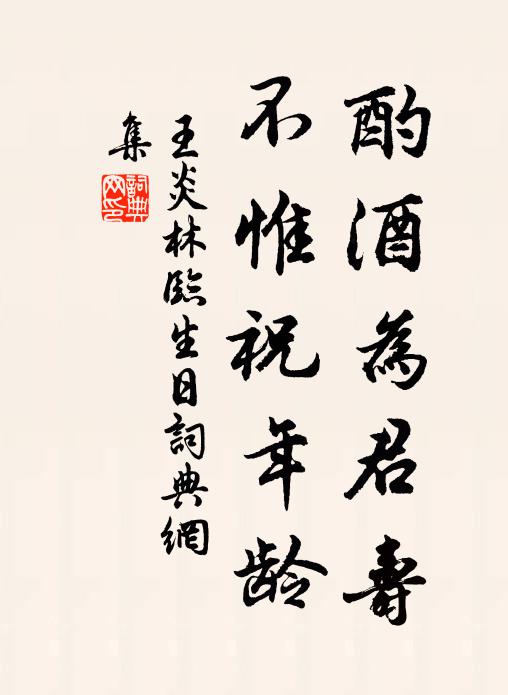 酌酒為君壽
不惟祝年齡
王炎林臨生日詞典網
集
詞典
网印